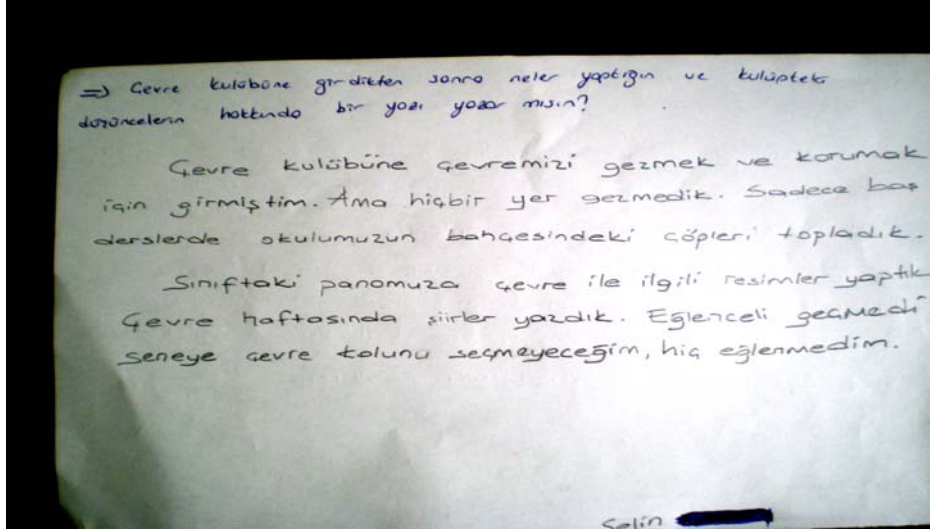 => Çevre kulübüne girdikten sonra neler yaptığın ve kulüpteki
düşüncelerin hakkında bir yazı yazar mısın?
Çevre kulübüne çevremizi gezmek ve korumak
için girmiştim. Ama hiçbir yer gezmedik. Sadece boş
derslerde okulumuzun bahçesindeki çöpleri topladık.
Sınıftaki panomuza çevre ile ilgili resimler yaptık
Çevre haftasında şiirler yazdık. Eğlenceli geçmedi
seneye çevre kolunu seçmeyeceğim, hiç eğlenmedim.
Selin